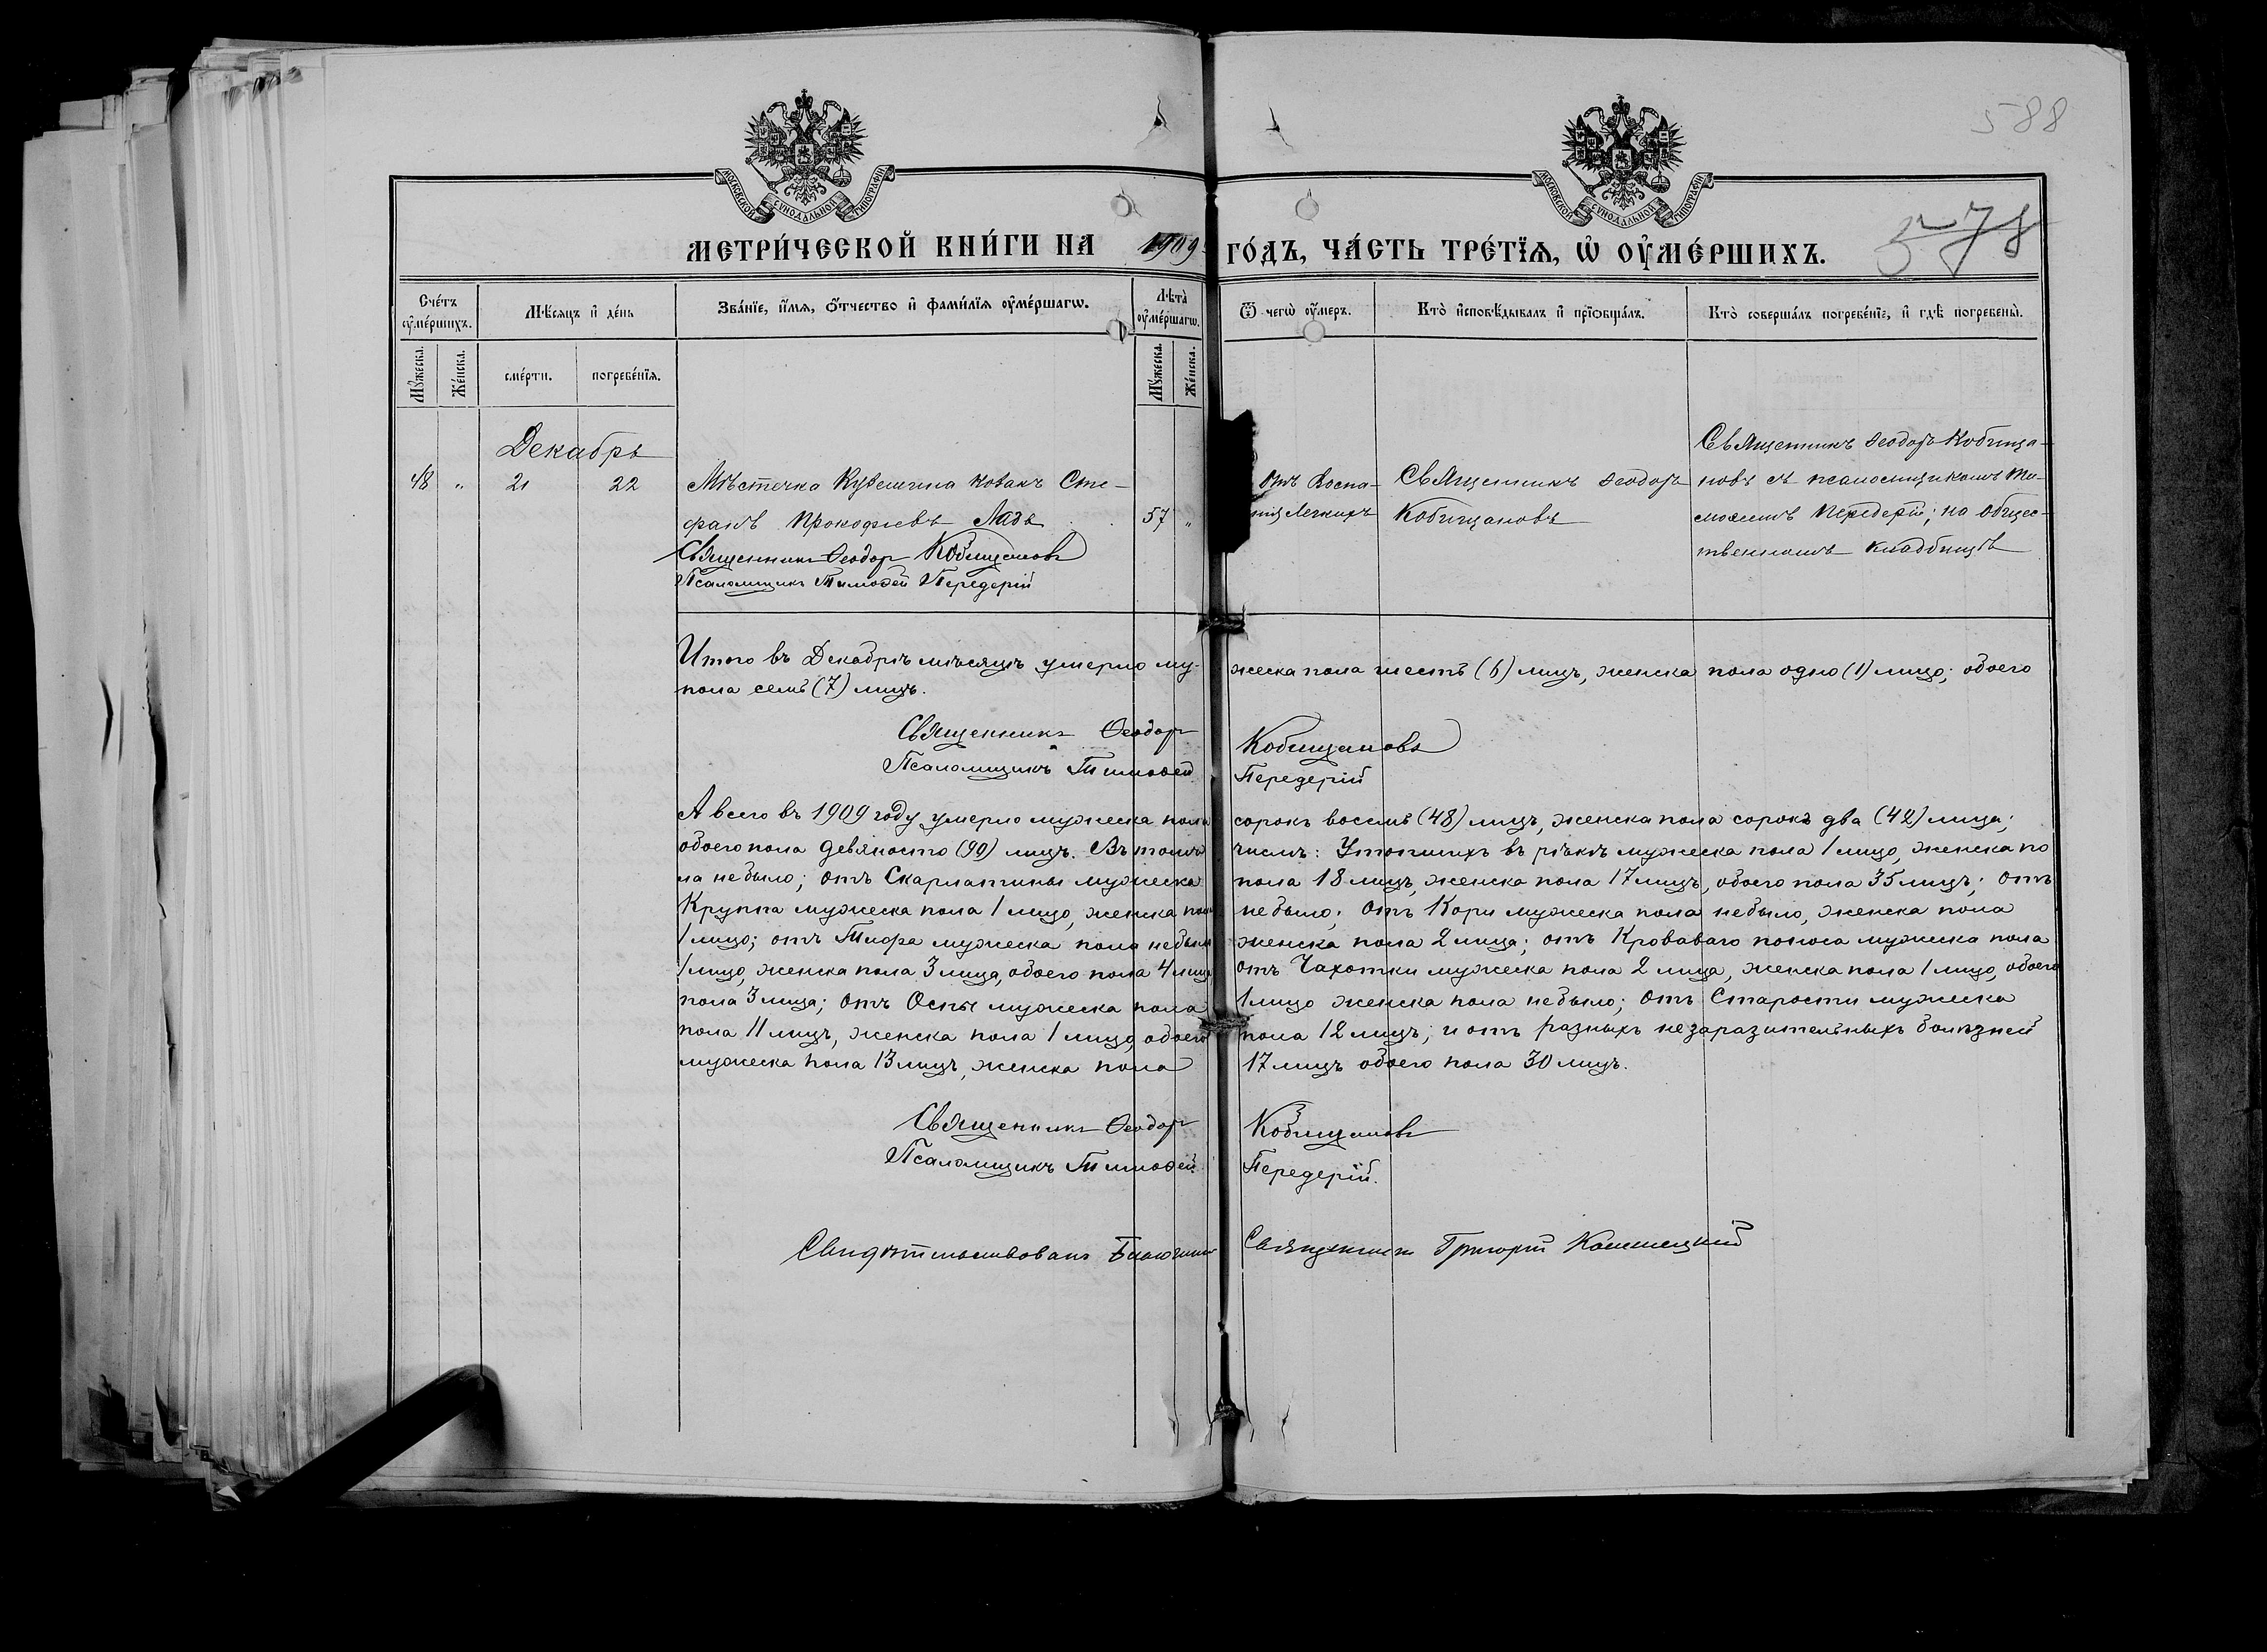 588
МОСКОВСКОЙ СѴНОДАЛЬНОЙ ТИПОГРАФІИ
МОСКОВСКОЙ СѴНОДАЛЬНОЙ ТИПОГРАФІИ
МЕТРИ́ЧЕСКОЙ КНИ́ГИ НА 1909 ГО́ДЪ, ЧА́СТЬ ТРЕ́ТЇѦ, Ѡ҆ ОУ҆МЕ́РШИХЪ.
578
Сче́тъ оу҆ме́ршихъ.
Мѣ́сяцъ и҆ де́нь
Зва́нїе, и҆́мѧ, ѻ҆́тчество и҆ фами́лїѧ оу҆ме́ршагѡ.
Лѣта̀ оу҆ме́ршагѡ.
Ѿ чегѡ̀ оу҆́меръ.
Кто̀ и҆сповѣ́дывалъ и҆ прїѡбща́лъ.
Кто̀ соверша́лъ погребе́нїе, и҆ гдѣ̀ погребены̀.
Мꙋ́жеска.
Же́нска.
сме́рти.
погребе́нїѧ.
Мꙋ́жеска.
Же́нска.
Декабрь
48 " 21 22
Мѣстечка козакъ Сте-
фанъ Прокофіевъ Лада
57 "
Отъ Воспа-
нія Легкихъ
Священникъ Ѳеодоръ
Кобищановъ
Священникъ Ѳеодоръ Кобища-
новъ съ псаломщикомъ Ти-
моѳеемъ Передерій; на общес-
твенномъ кладбищѣ
Священникъ Ѳеодоръ Кобищановъ
Псаломщикъ Тимоѳей Передерій
Итого въ Декабрѣ мѣсяцѣ умерло му- жеска пола шесть (6) лицъ, женска пола одно (1) лицо; обоего
пола семь (7) лицъ.
Священникъ Ѳеодоръ Кобищановъ
Псаломщикъ Тимоѳей Передерій
А всего въ 1909 году умерло мужеска пола сорокъ восемь (48) лицъ, женска пола сорокъ два (42) лица;
обоего пола девяносто (90) лицъ. Въ томъ числѣ: Утопшихъ въ рѣкѣ мужеска пола 1 лицо, женска по
ла не было; отъ Скарлатины мужеска пола 18 лицъ, женска пола 17 лицъ, обоего пола 35 лицъ; отъ
Круппа мужеска пола 1 лицо, женска пола не было; отъ Кори мужеска пола не было, женска пола
1 лицо; отъ Тифа мужеска пола не было женска пола 2 лица; отъ Кроваваго поноса мужеска пола
1 лицо, женска пола 3 лица, обоего пола 4 лица отъ Чахотки мужеска пола 2 лица, женска пола 1 лицо, обоего
пола 3 лица; отъ Оспы мужеска пола 1 лицо женска пола не было; отъ Старости мужеска
пола 11 лицъ, женска пола 1 лицо, обоего пола 12 лицъ; и отъ разныхъ незаразительныхъ болѣзней
мужеска пола 13 лицъ, женска пола 17 лицъ обоего пола 30 лицъ.
Священникъ Ѳеодоръ Кобищановъ
Псаломщикъ Тимоѳей Передерій.
Свидѣтельствовалъ Благочинный Священникъ Григорій